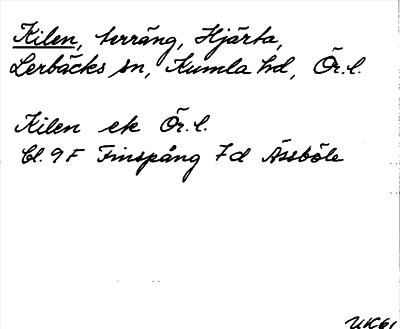 Kilen, terräng, Hjärta,
Lerbäcks sn, Kumla hd, Ör. l.
Kilen ek Ör. l.
Bl. 9 F Finspång 7 d Åsböle
UK61